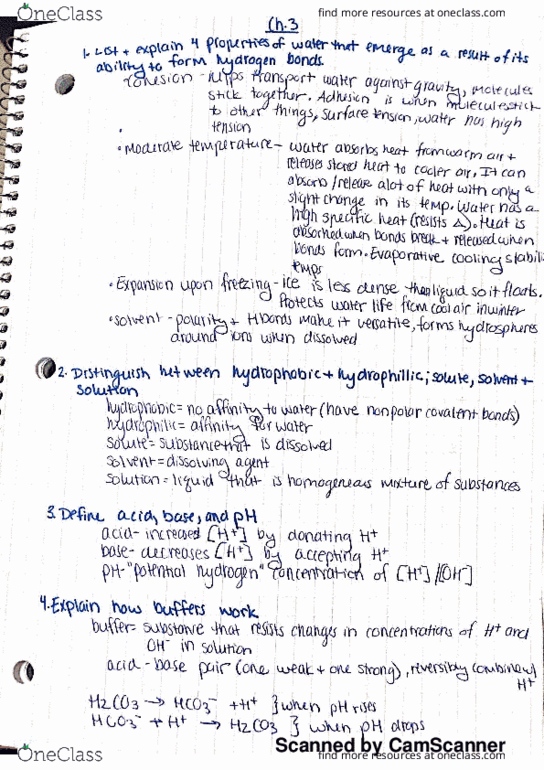 OneClass
find more resources at oneclass.com
Ch.3
1. List + explain 4 properties of water that emerge as a result of its
ability to form hydrogen bonds.
Cohesion - helps transport water against gravity, molecules
stick together. Adhesion is when molecules stick
to other things, surface tension, water has high
tension
• Moderate temperature - water absorbs heat from warm air +
releases stored heat to cooler air. It can
absorb/release alot of heat with only a
slight change in its temp. Water has a
high specific heat (resists Δ). Heat is
absorbed when bonds break + released when
bonds form. Evaporative cooling stabili
temps
• Expansion upon freezing - ice is less dense than liquid so it floats.
Protects water life from cool air in winter
• solvent - polarity + H bonds make it versatile, forms hydrospheres
around ions when dissolved
2. Distinguish between hydrophobic + hydrophillic; solute, solvent +
solution
hydrophobic = no affinity to water (have nonpolar covalent bonds)
hydrophilic = affinity for water
solute = substance that is dissolved
solvent = dissolving agent
solution = liquid that is homogeneous mixture of substances
3. Define acid, base, and pH
acid - increased [H+] by donating H+
base - decreases [H+] by accepting H+
pH - "potential hydrogen" concentration of [H+]/[OH-]
4. Explain how buffers work
buffer = substance that resists changes in concentrations of H+ and
OH- in solution
acid - base pair (one weak + one strong), reversibly combine w/
H+
H2CO3 → HCO3- + H+ } when pH rises
HCO3- + H+ → H2CO3 } when pH drops
Scanned by CamScanner
OneClass
find more resources at oneclass.com